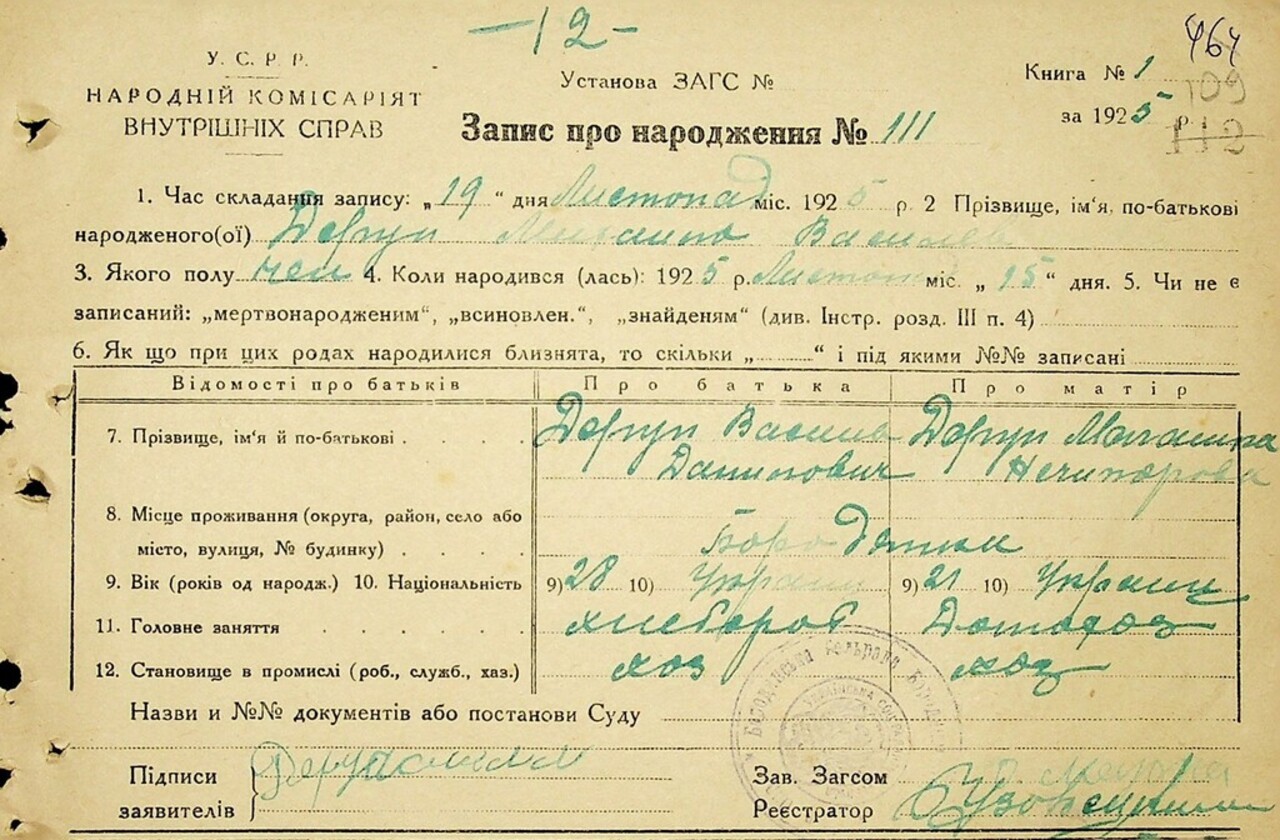 -12-
464
У. С. Р. Р.
Установа ЗАГС №
Книга № 1
109
НАРОДНІЙ КОМІСАРІЯТ
ВНУТРІШНІХ СПРАВ
за 1925 р.
112
Запис про народження № 111
1. Час складання запису: „19“ дня Листопад міс. 1925 р. 2 Прізвище, ім‘я, по-батькові
народженого(ої) Михайло Василів
3. Якого полу чол 4. Коли народився (лась): 1925 р. Листопад міс. „15“ дня. 5. Чи не є
записаний: „мертвонародженим“, „всиновлен.“, „знайденям“ (див. Інстр. розд. III п. 4)
6. Як що при цих родах народилися близнята, то скільки „ “ і під якими №№ записані
Відомості про батьків Про батька Про матір
7. Прізвище, ім‘я й по-батькові Василь
Данилович Нечипорова
8. Місце проживання (округа, район, село або
місто, вулиця, № будинку) Бородянка
9. Вік (років од народж.) 10. Національність 9) 28 10) Україн 9) 21 10) Україн
11. Головне заняття хлібороб Домохоз
12. Становище в промислі (роб., служб., хаз.) хоз хоз
Назви и №№ документів або постанови Суду
Підписи
заявителів
Зав. Загсом
Реєстратор